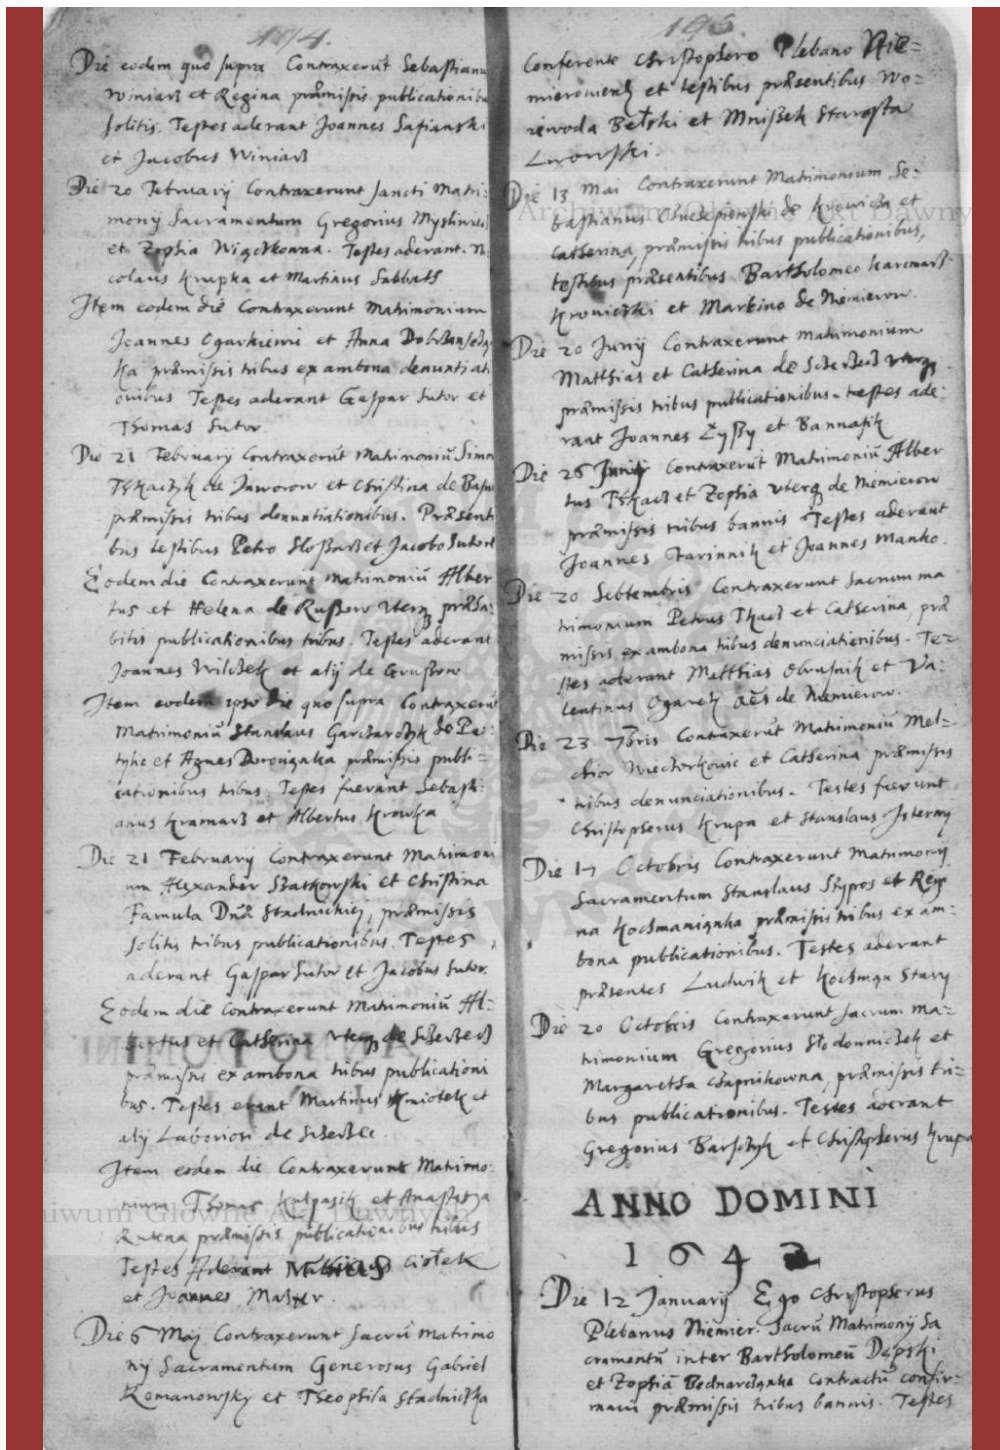 194.
Die eodem quo supra Contraxerūt Sebastianu
Winiarz et Regina præmissis publicationibu
solitis. Testes aderant Joannes Safianski
et Jacobus Winiarz
Die 20 February Contraxerunt sancti Matri:
monij Sacramentum Gregorius Mysliwiec
et Zophia Wiączkowna. Testes aderant. Ni
colaus Krupka et Martinus Sabbath
Item eodem die Contraxerunt Matrimonium
Joannes Ogarkiewic et Anna
ka præmissis tribus ex ambona denuntiati
onibus Testes aderant Gaspar Sutor et
Thomas Sutor.
Die 21 February Contraxerūt Matrimoniū Simo
Tkaczyk de Jaworow et Christina de
præmissis tribus denuntiationibus. Præsenti
bus testibus Petro et Jacobo Sutore
Eodem die Contraxerunt Matrimoniū Alber
tus et Helena de Ruszow uterq præha:
bitis publicationibus tribus. Testes aderant
Joannes Wilczek et alij de Gruszow
Item eodem ipso die quo supra Contraxerūt
Matrimoniū Stanslaus Garczarczyk de Po:
tylic et Agnes præmissis publi=
cationibus tribus. Testes fuerant Sebasti:
anus Kramarz et Albertus Krowka
Die 21 February Contraxerunt Matrimoni
um Alexander Szatkowski et Christina
Famula Dnæ Stadnickiej, præmissis
solitis tribus publicationibus. Testes
aderant Gaspar Sutor et Jacobus Sutor.
Eodem die Contraxerunt Matrimoniū Al=
bertus et Catherina uterq de
præmissis ex ambona tribus publicationi
bus. Testes erant Martinus Kmiotek et
alij Laboriosi de
Item eodem die Contraxerunt Matrimo:
nium Thomas Kulpasik et Anastazia
Rutena præmissis publicationibus tribus
Testes Aderant Mathias Ciołek
et Joannes
Die 6 Maij Contraxerunt sacrū matrimo
nij Sacramentum Generosus Gabriel
Romanowsky et Theophila Stadnicka
195.
Conferente Christophoro Plebano Nie=
mierowien et testibus præsentibus Wo=
iewoda Bełski et Mniszek Starosta
Lwowski.
Die 13 Mai Contraxerunt Matrimonium Se=
bastianus de Krowicza et
Catherina, præmissis tribus publicationibus,
testibus præsentibus Bartholomeo Karcmarz
Krowiczki et Martino de Niemierow.
Die 20 Junij Contraxerunt matrimonium
Matthias et Catherina de uterq
præmissis tribus publicationibus. testes ade:
rant Joannes Łyssy et Bannasik
Die 26 Junij Contraxerūt Matrimoniū Alber
tus Tkacz et Zophia uterq de Niemierow
præmissis tribus bannis Testes aderant
Joannes et Joannes Manko.
Die 20 Sebtembris Contraxerunt sacrum ma
trimonium Petrus Tkacz et Catherina, præ
missis ex ambona tribus denunciationibus. Te=
stes aderant Matthias Obrusnik et Va:
lentinus Ogarek de Niemierow.
Die 23 7bris Contraxerūt Matrimoniū Mel=
chior Wieczorkowic et Catherina præmissis
tribus denunciationibus. Testes fuerunt
Christopherus Krupa et Stanslaus
Die 17 Octobris Contraxerunt Matrimonij
Sacramentum Stanslaus et Regi
na Kocsmanianka præmissis tribus ex am=
bona publicationibus. Testes aderant
præsentes Ludwik et Kocsman Stary
Die 20 Octobris Contraxerunt sacrum ma=
trimonium Gregorius Słodowniczek et
Margaretha Czapnikowna, præmissis tri=
bus publicationibus. Testes aderant
Gregorius et Christopherus Krupa
ANNO DOMINI
1642
Die 12 January Ego Christopherus
Plebanus Niemier. Sacrū Matrimonij Sa
cramentū inter Bartholomeū Dępski
et Zophiā Bednarczanka Contractū confir=
mavi præmissis tribus bannis. Testes
Archiwum Główne Akt Dawnych